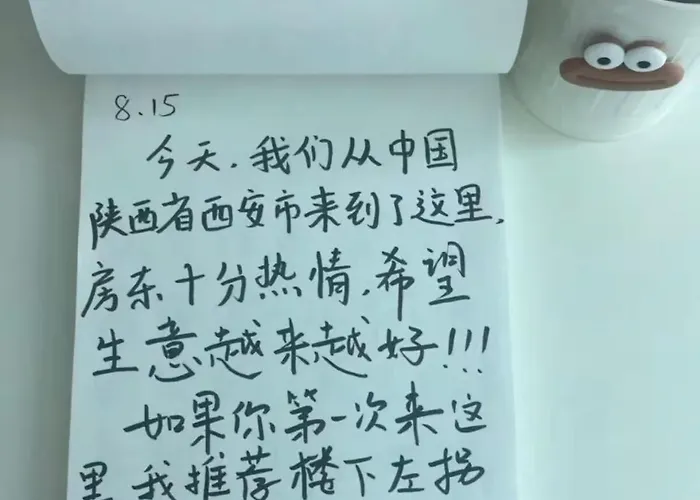 8.15
今天,我们从中国
陕西省西安市来到了这里,
房东十分热情,希望
生意越来越好!!!
如果你第一次来这
里,我推荐楼下左拐